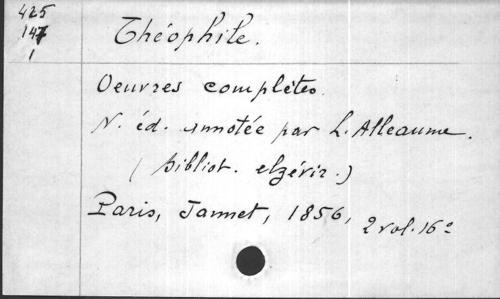 425
147
1
Théophile.
Oeuvres complètes.
N. éd. annotée par L. Alleaume.
(Bibliot. elzévir.)
Paris, Jannet, 1856, 2 vol. 16º